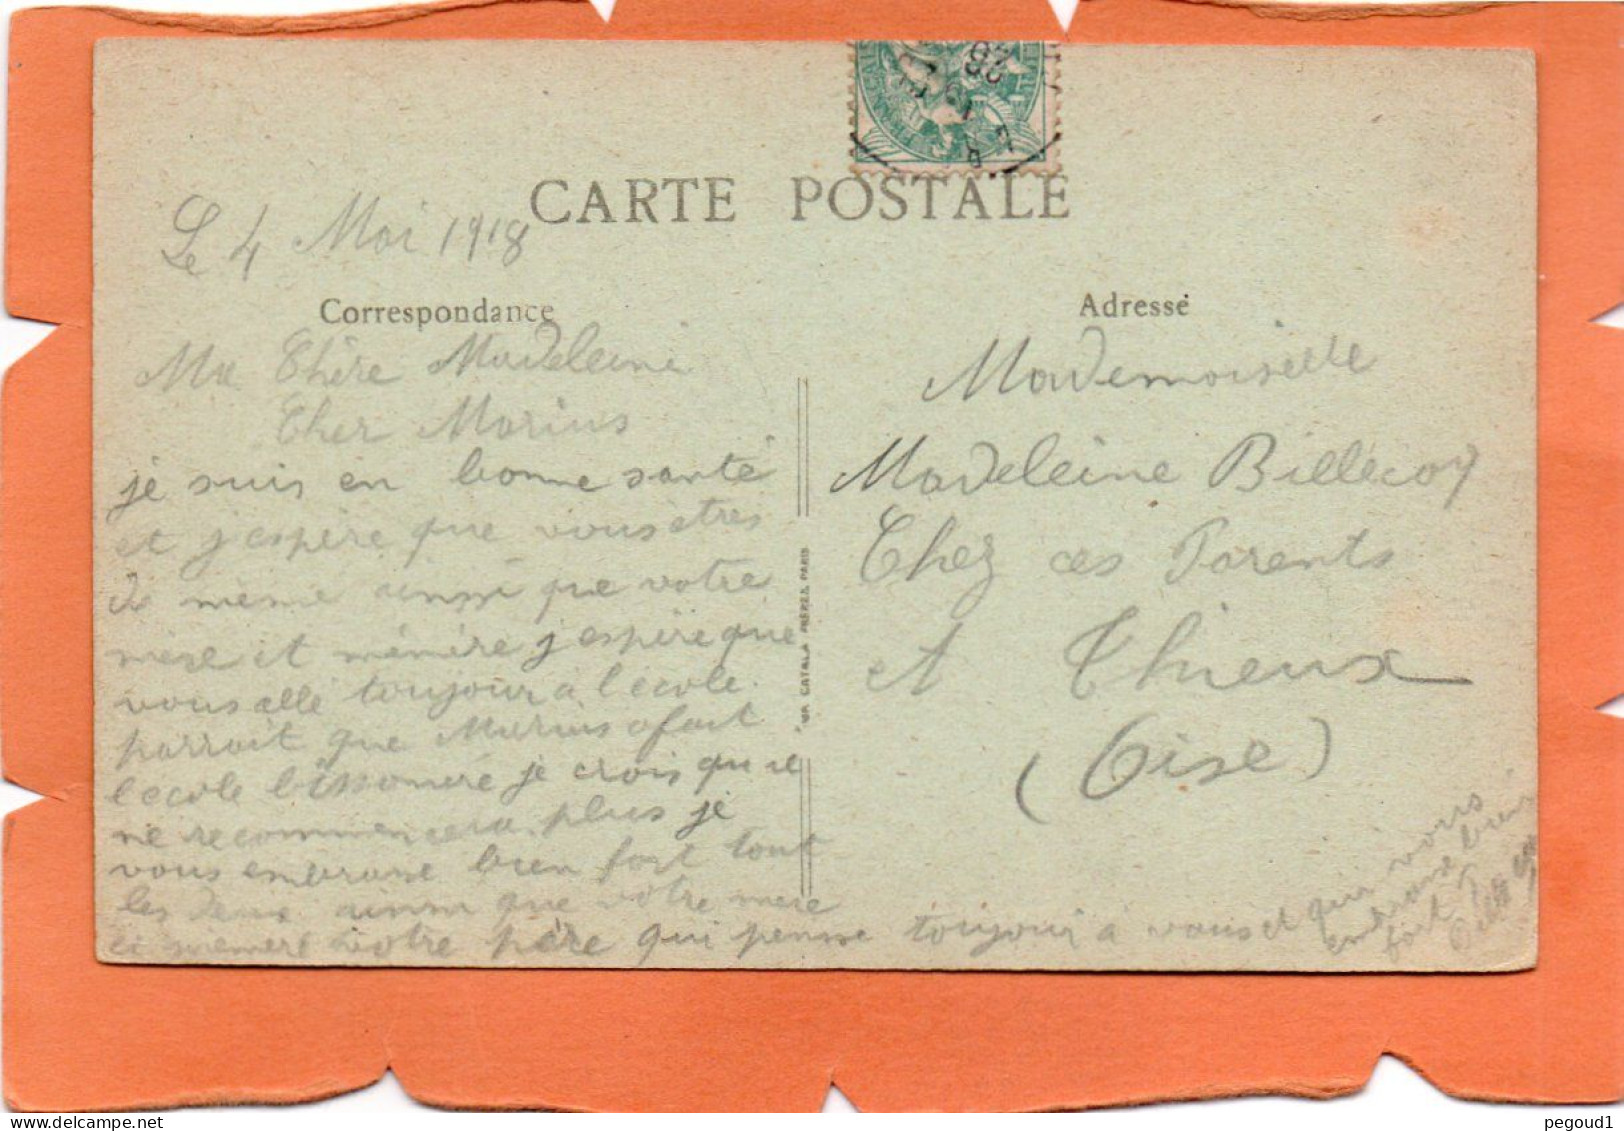 CARTE POSTALE
Le 4 Mai 1918
Correspondance
Ma Chère Madeleine
Cher Marius
je suis en bonne santé
et j'espère que vous êtres
de même ainsi que votre
mère et mémère j'espère que
vous allé toujour a l'école.
parrait que Marius a fait
l'école je crois qu'il
ne recommencera plus je
vous embrasse bien fort tout
les deux ainsi que votre mère
et mémère votre père qui pensse toujour a vous et qui vous
embrasse bien
fort
IMP. CATALA FRÈRES, PARIS
Adresse
Mademoiselle
Madeleine Billecoy
Chez ces Parents
A Thieux
(Oise)
pegoud1